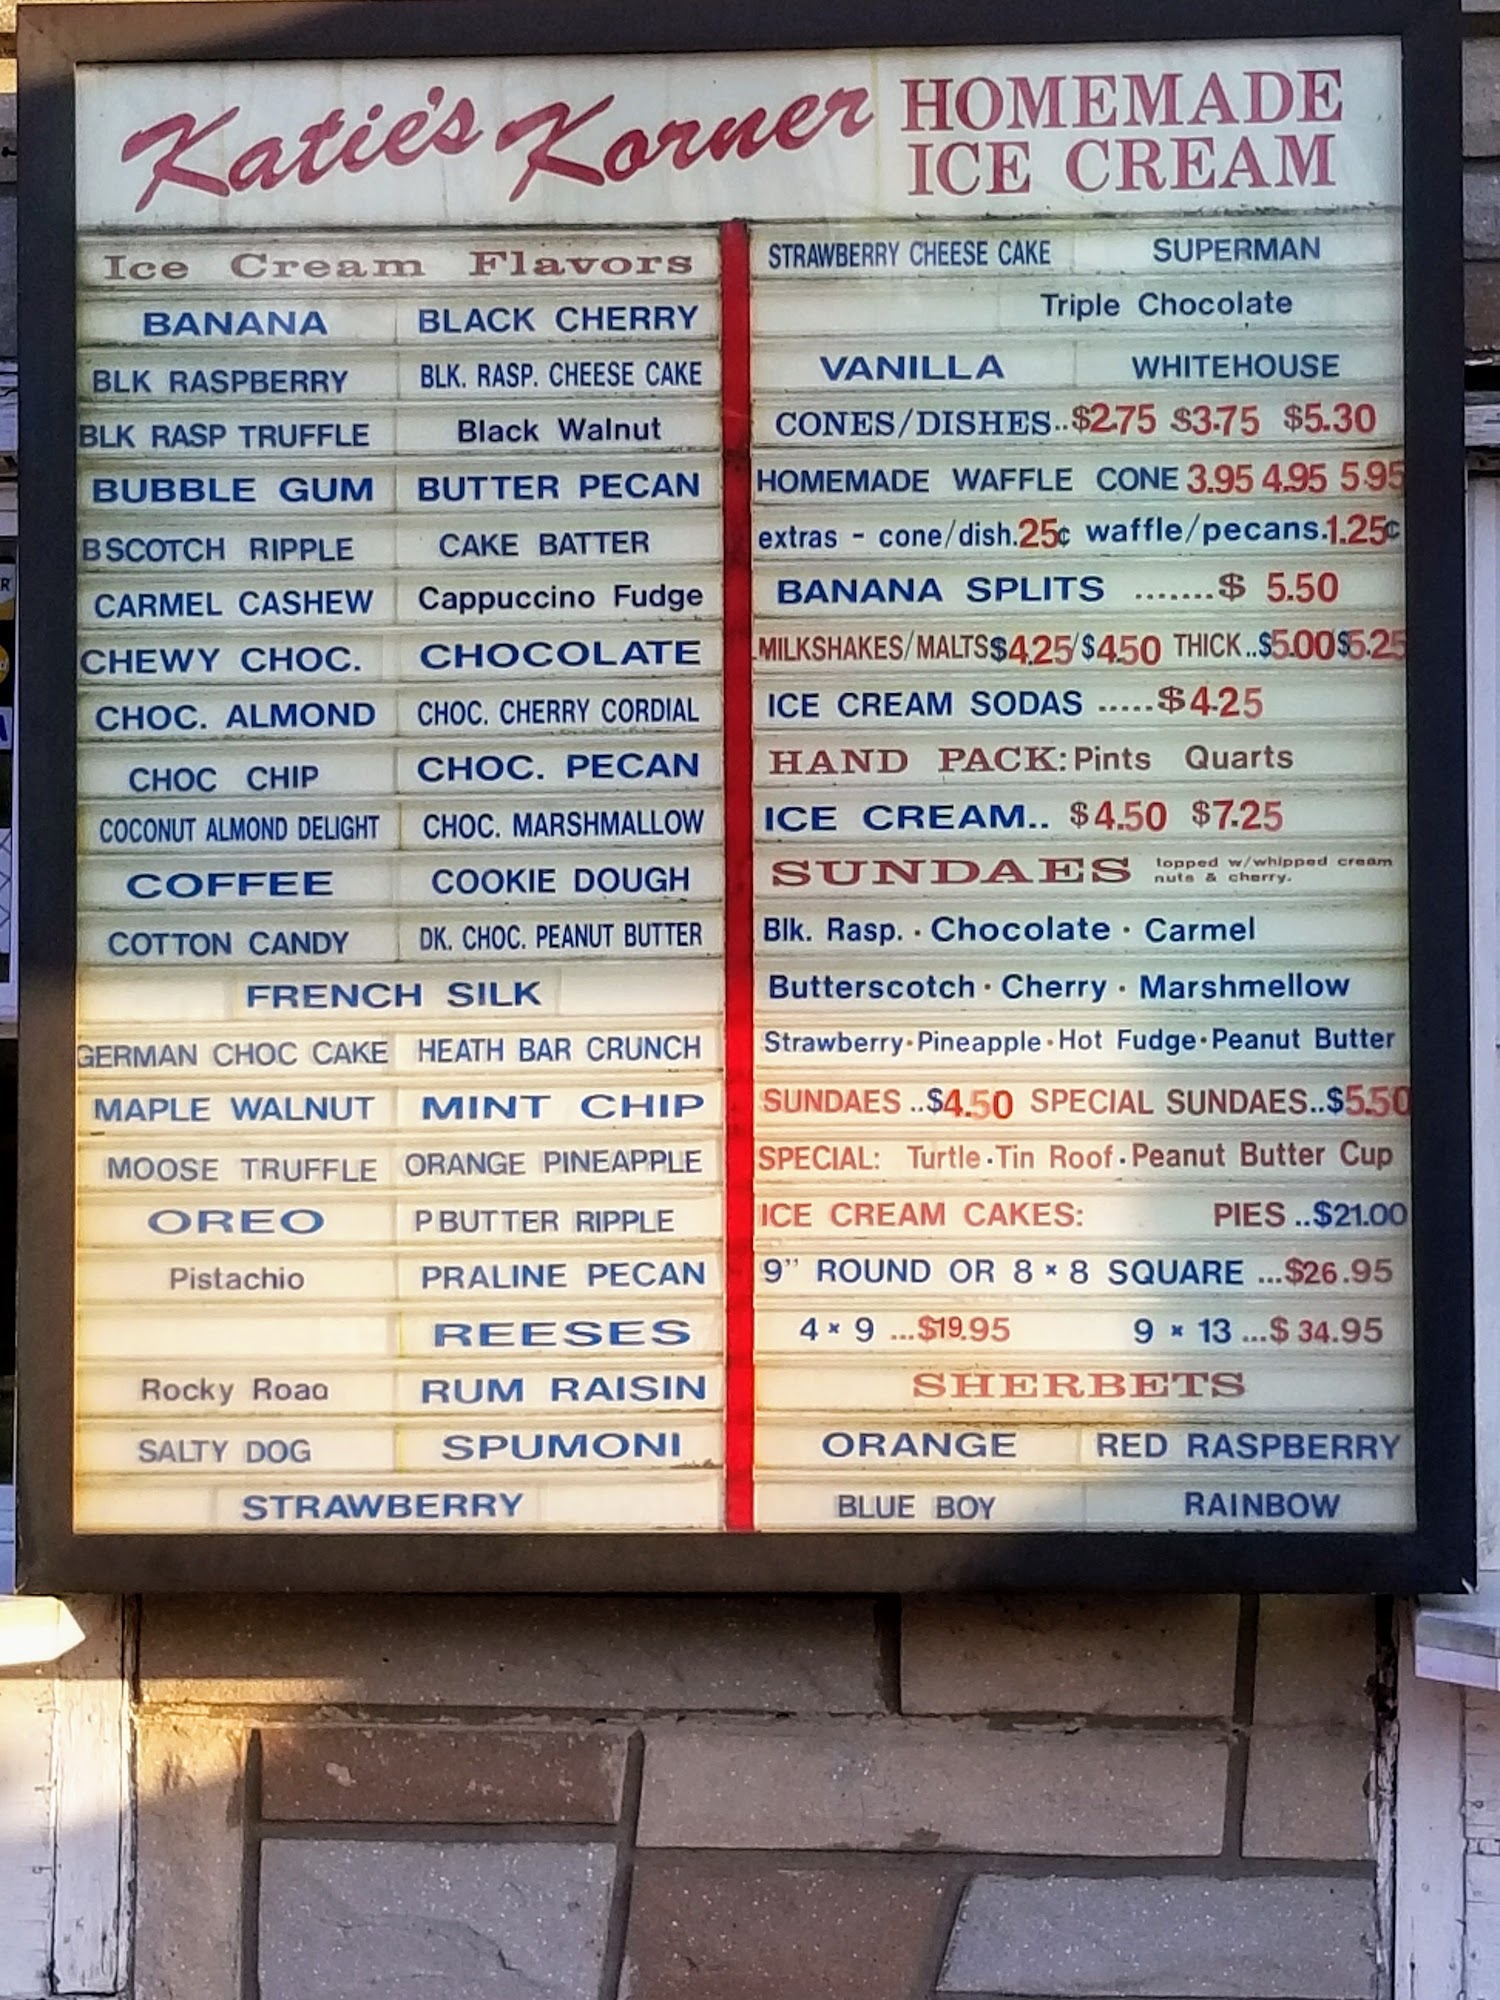 Katie's Korner HOMEMADE
ICE CREAM
Ice Cream Flavors
BANANA BLACK CHERRY
BLK RASPBERRY BLK. RASP. CHEESE CAKE
BLK RASP TRUFFLE Black Walnut
BUBBLE GUM BUTTER PECAN
BSCOTCH RIPPLE CAKE BATTER
CARMEL CASHEW Cappuccino Fudge
CHEWY CHOC. CHOCOLATE
CHOC. ALMOND CHOC. CHERRY CORDIAL
CHOC CHIP CHOC. PECAN
COCONUT ALMOND DELIGHT CHOC. MARSHMALLOW
COFFEE COOKIE DOUGH
COTTON CANDY DK. CHOC. PEANUT BUTTER
FRENCH SILK
GERMAN CHOC CAKE HEATH BAR CRUNCH
MAPLE WALNUT MINT CHIP
MOOSE TRUFFLE ORANGE PINEAPPLE
OREO PBUTTER RIPPLE
Pistachio PRALINE PECAN
REESES
Rocky Road RUM RAISIN
SALTY DOG SPUMONI
STRAWBERRY
STRAWBERRY CHEESE CAKE SUPERMAN
Triple Chocolate
VANILLA WHITEHOUSE
CONES/DISHES..$2.75 $3.75 $5.30
HOMEMADE WAFFLE CONE 3.95 4.95 5.95
extras - cone/dish.25¢ waffle/pecans.1.25¢
BANANA SPLITS .......$ 5.50
MILKSHAKES/MALTS$4.25/$4.50 THICK..$5.00$5.25
ICE CREAM SODAS .....$4.25
HAND PACK: Pints Quarts
ICE CREAM.. $4.50 $7.25
SUNDAES topped w/whipped cream
nuts & cherry.
Blk. Rasp. · Chocolate · Carmel
Butterscotch · Cherry · Marshmellow
Strawberry·Pineapple·Hot Fudge·Peanut Butter
SUNDAES ..$4.50 SPECIAL SUNDAES..$5.50
SPECIAL: Turtle·Tin Roof·Peanut Butter Cup
ICE CREAM CAKES: PIES ..$21.00
9" ROUND OR 8 × 8 SQUARE ...$26.95
4 × 9 ...$19.95 9 × 13 ...$ 34.95
SHERBETS
ORANGE RED RASPBERRY
BLUE BOY RAINBOW